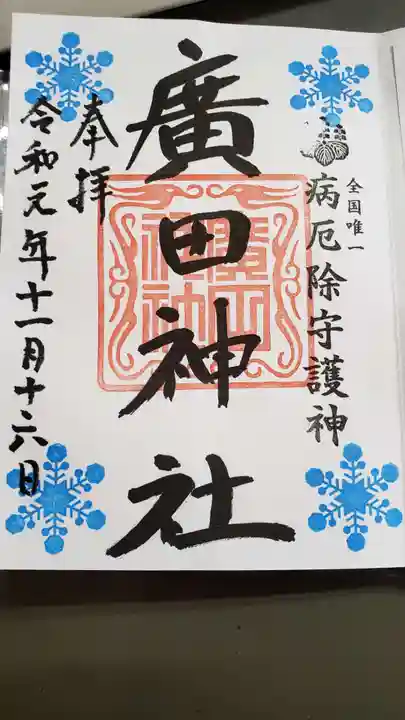 全国唯一
病厄除守護神
廣田神社
奉拝
令和元年十一月十六日